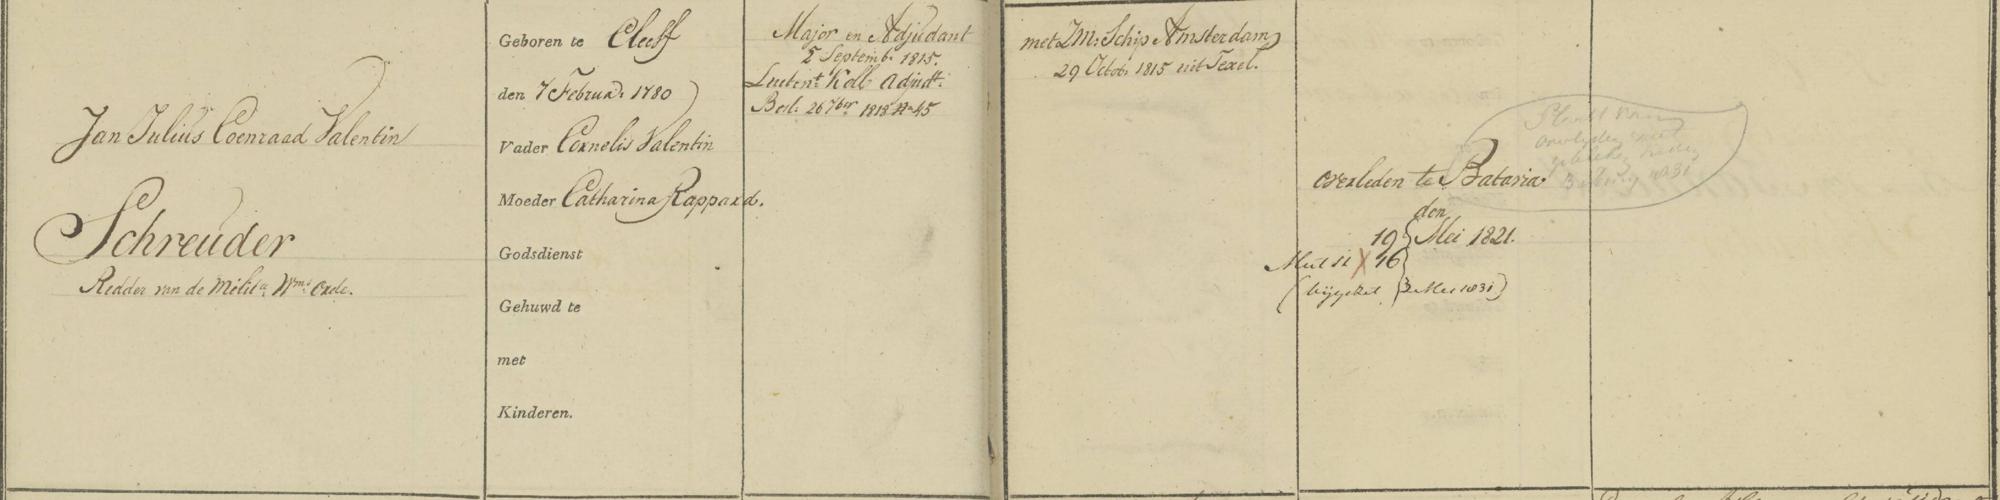 Jan Julius Coenraad Valentin
Schreuder
Redder van de Milit. Wms Orde.
Geboren te Cleeff
den 7 Februa: 1780
Vader Cornelis Valentin
Moeder Catharina Rappard.
Godsdienst
Gehuwd te
met
Kinderen.
Major en Adjudant
5 Septemb. 1815.
Luiten:t Koll: adjudt:
Besl: 26 7ber 1818 No 45
met ZM: Schip Amsterdam
29 Octob: 1815 uit Texel.
overleden te Batavia
den
19 Mei 1821.
16
1831